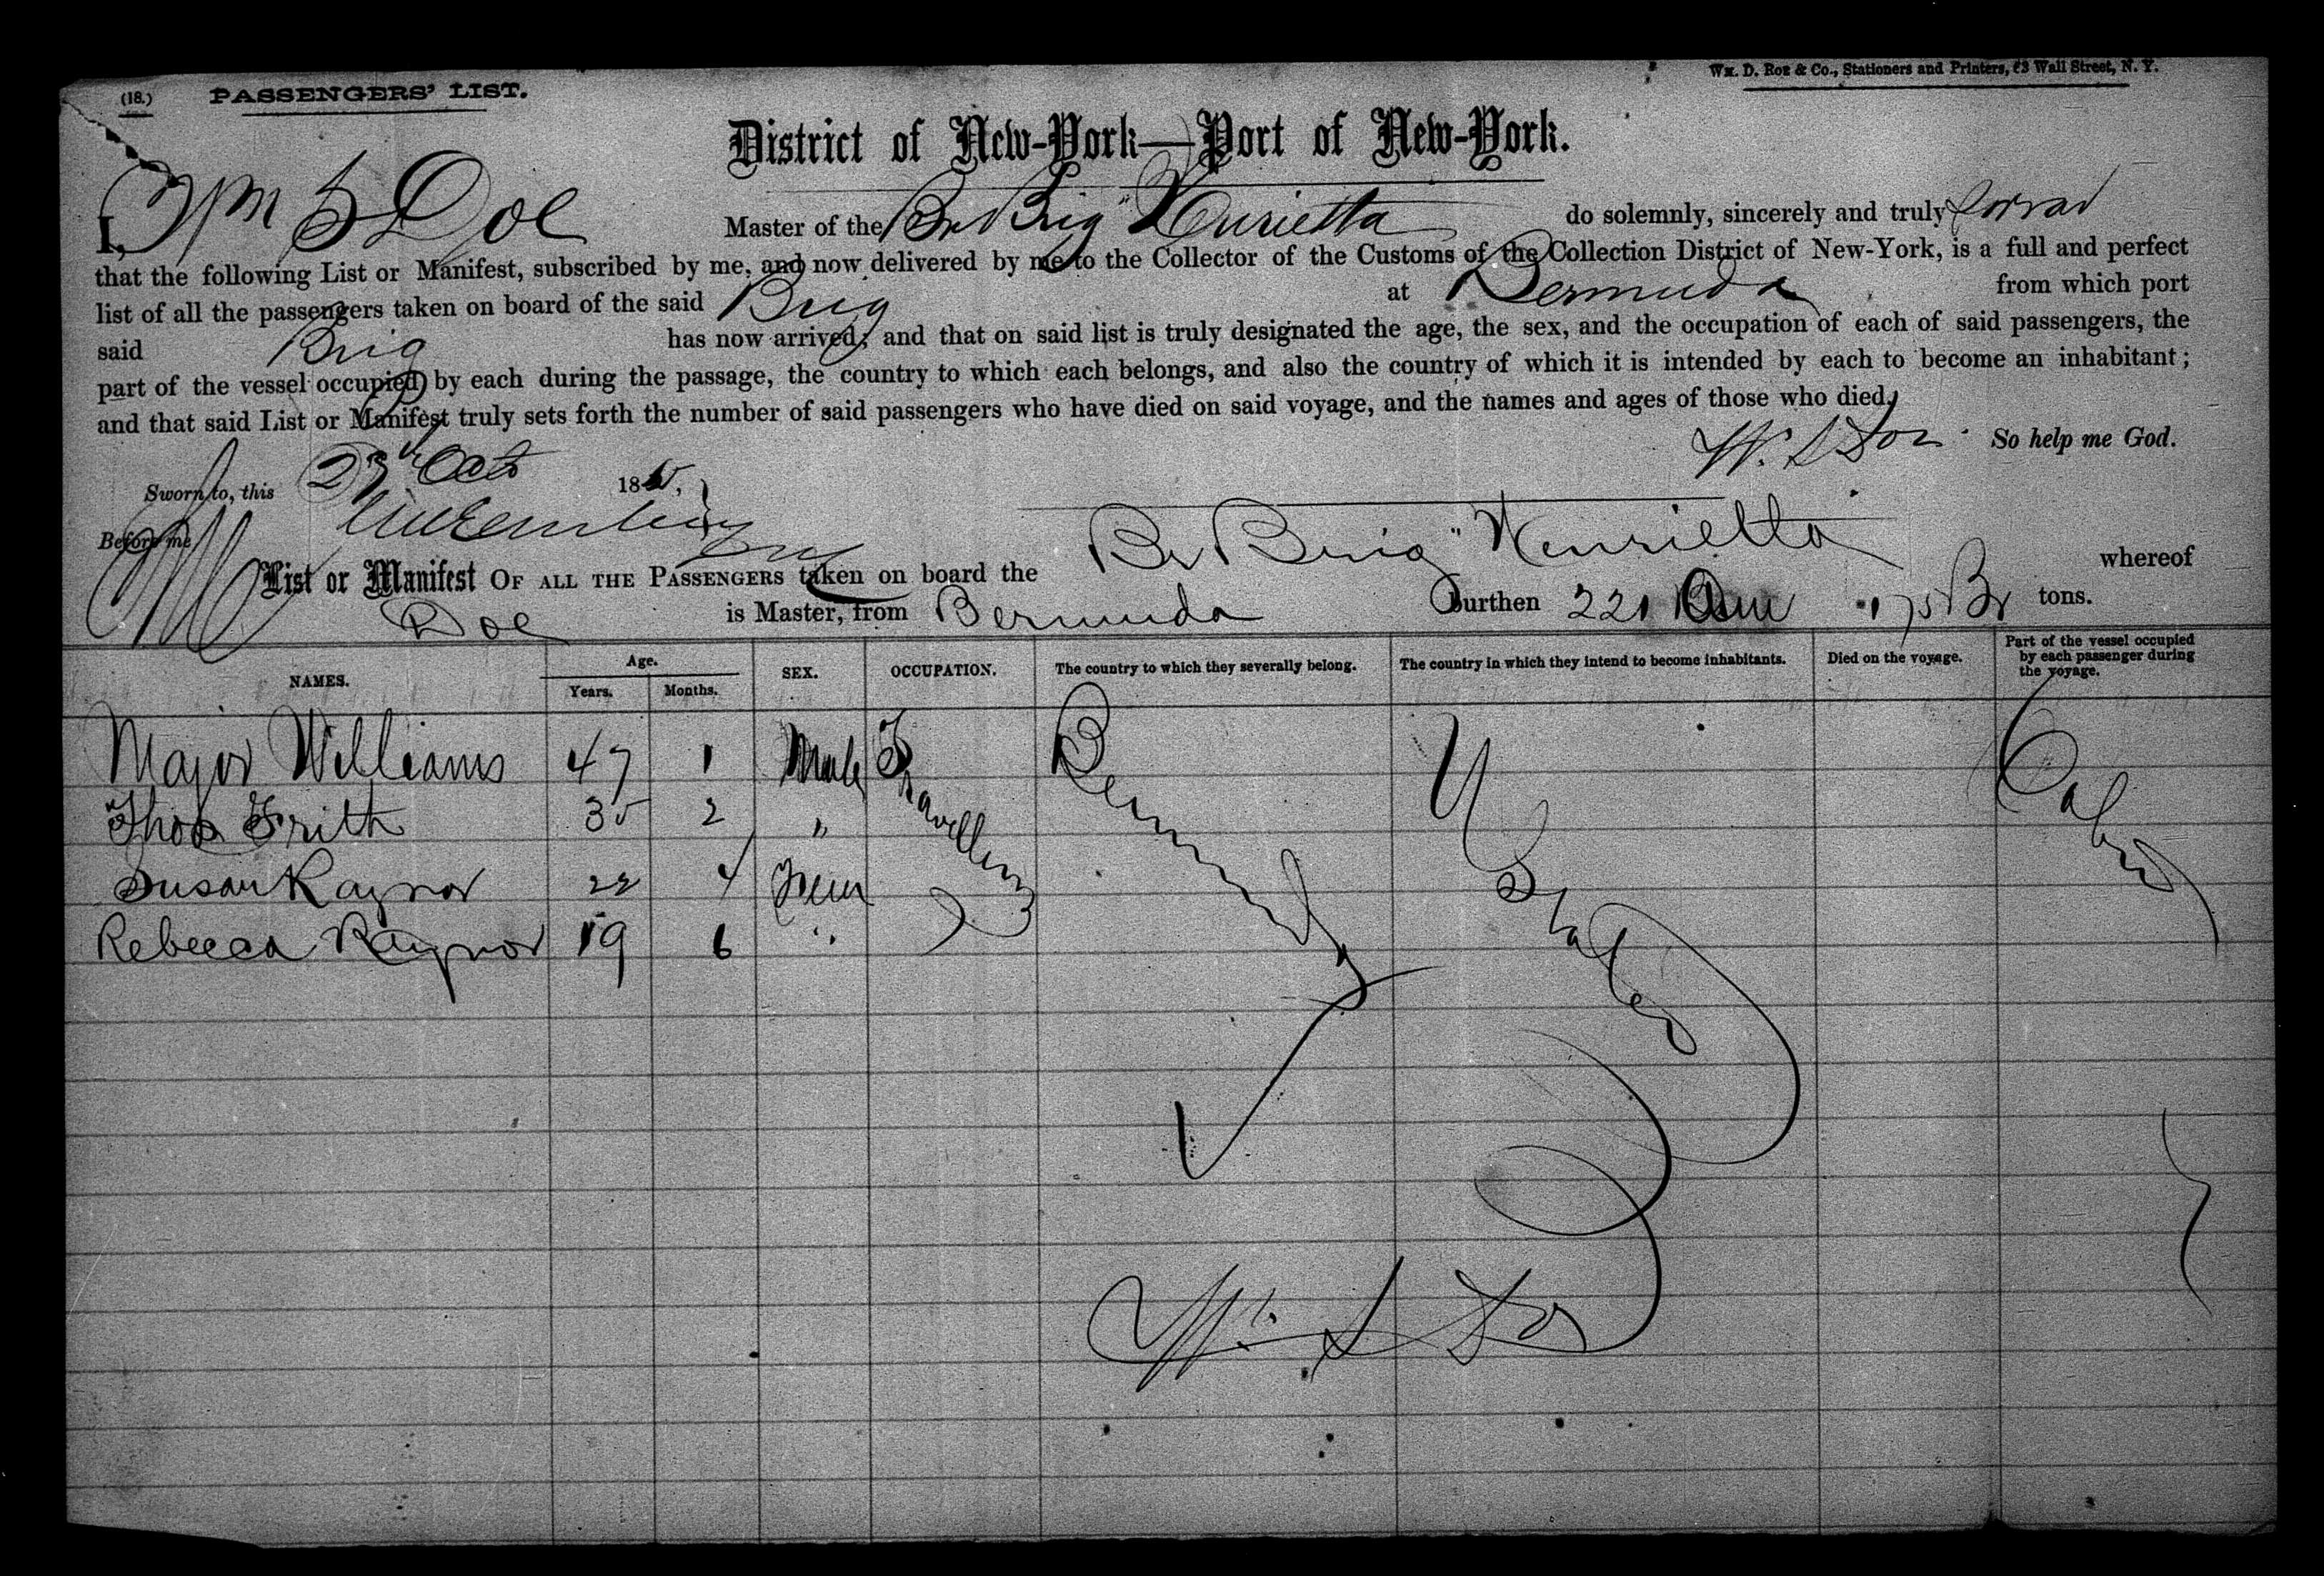 (18.) PASSENGERS' LIST.
Wm. D. Roe & Co., Stationers and Printers, 63 Wall Street, N. Y.
District of New-York—Port of New-York.
I, Wm S Doe Master of the Br Brig "Henrietta do solemnly, sincerely and truly
that the following List or Manifest, subscribed by me, and now delivered by me to the Collector of the Customs of the Collection District of New-York, is a full and perfect
list of all the passengers taken on board of the said Brig at Bermuda from which port
said Brig has now arrived; and that on said list is truly designated the age, the sex, and the occupation of each of said passengers, the
part of the vessel occupied by each during the passage, the country to which each belongs, and also the country of which it is intended by each to become an inhabitant;
and that said List or Manifest truly sets forth the number of said passengers who have died on said voyage, and the names and ages of those who died.
W. S Doe So help me God.
Sworn to, this 23d Oct 18
Before me
List or Manifest OF ALL THE PASSENGERS taken on board the Br Brig "Henrietta whereof
Doe is Master, from Bermuda Burthen 221 175 Br tons.
NAMES. Age. Years. Months. SEX. OCCUPATION. The country to which they severally belong. The country in which they intend to become inhabitants. Died on the voyage. Part of the vessel occupied by each passenger during the voyage.
Major Williams 47 1 Male Travellers Bermuda U States Cabin
Thos Frith 35 2 "
Susan Raynor 22 4 Fem
Rebecca Raynor 19 6 "
Wm S Doe